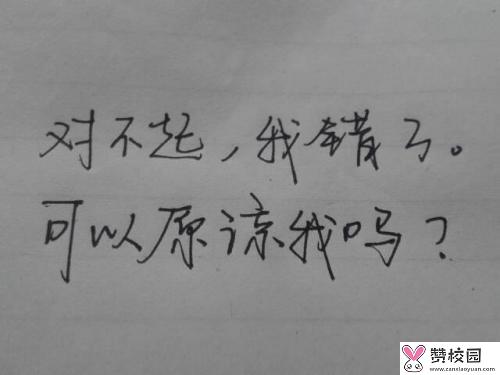 对不起，我错了。
可以原谅我吗？
赞校园
www.zanxiaoyuan.com